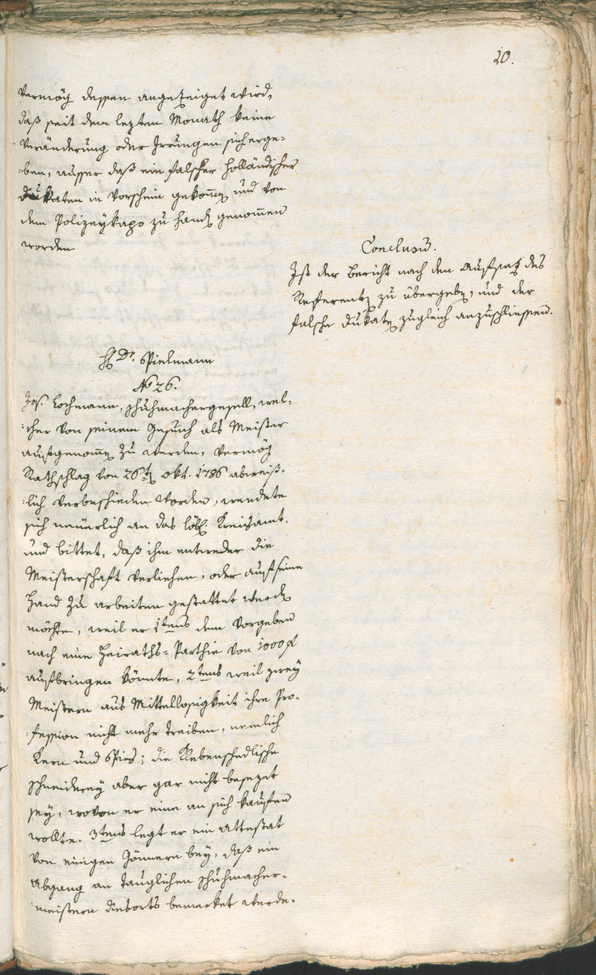 20.
vermög dessen angezeiget wird,
daß seit dem lezten Monath keine
Veränderung oder Irrungen sich erge-
ben, ausser daß ein falscher holländischer
Dukaten in Vorschein gekom̄en und von
dem Polizeykapo zu handen genom̄en
worden
Conclusum.
Ist der Bericht nach dem Aufsatz des
Referenten zu übergeben, und der
falsche Dukaten zugleich anzuschliessen.
H. Dr. Spielmann
No 26.
Jos. Lochmann, Schuhmachergesell, wel-
cher von seinem Gesuch als Meister
aufgenom̄en zu werden, vermög
Rathschlag von 26ten Okt. 1786 abweiß-
lich verbeschieden worden, wendete
sich neuerlich an das löbl. Kreisamt,
und bittet, daß ihm entweder die
Meisterschaft verliehen, oder auf seine
Hand zu arbeiten gestattet werden
möchte, weil er 1tens dem Vorgeben
nach eine Heiraths-Parthie von 1000 f
aufbringen könnte, 2tens weil zwey
Meistern aus Mittellosigkeit ihre Pro-
fession nicht mehr treiben, nemlich
Kern und Spies; die
aber gar nicht besezet
sey, wovon er eine an sich kaufen
wollte. 3tens legt er ein Attestat
von einigen Gönnern bey, daß ein
Abgang an tauglichen Schuhmacher-
meistern dießorts bemerket werde.